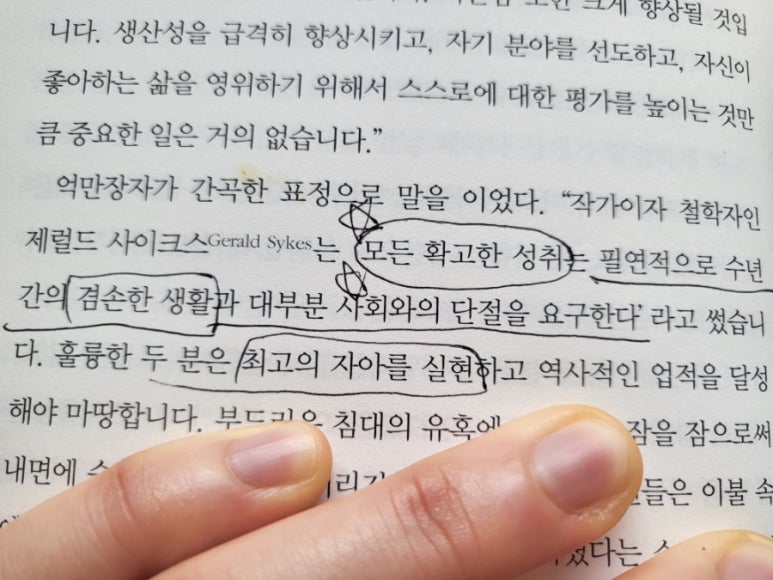 크게 향상될 것입
니다. 생산성을 급격히 향상시키고, 자기 분야를 선도하고, 자신이
좋아하는 삶을 영위하기 위해서 스스로에 대한 평가를 높이는 것만
큼 중요한 일은 거의 없습니다.”
억만장자가 간곡한 표정으로 말을 이었다. “작가이자 철학자인
제럴드 사이크스Gerald Sykes는 ‘모든 확고한 성취는 필연적으로 수년
간의 겸손한 생활과 대부분 사회와의 단절을 요구한다’라고 썼습니
다. 훌륭한 두 분은 최고의 자아를 실현하고 역사적인 업적을 달성
해야 마땅합니다. 부드러운 침대의 유혹에 잠을 잠으로써
내면에 이불 속